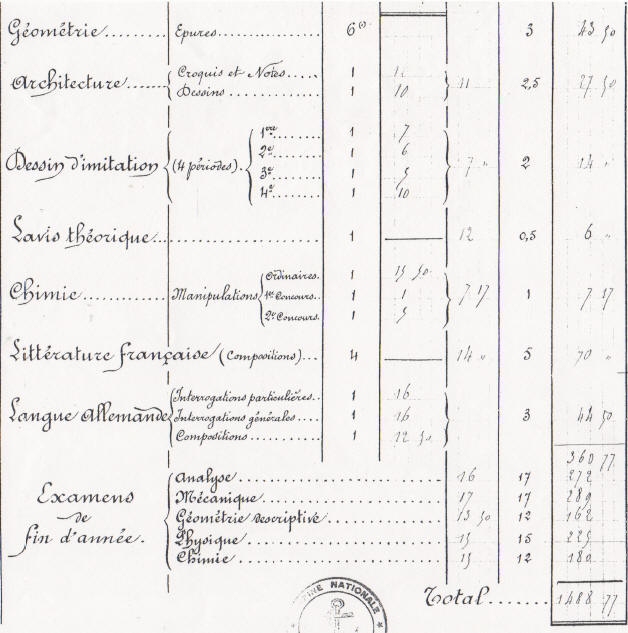 Géométrie......... Epures.................. 6 (1) 3 43 50
Architecture....... Croquis et Notes..... 1 11
Dessins............... 1 10 11 2,5 27 50
Dessin d'imitation (4 périodes). 1ère........ 1 7
2e........ 1 6 7 " 2 14 "
3e........ 1 5
4e........ 1 10
Lavis théorique........................ 1 — 12 0,5 6 "
Chimie............ Manipulations Ordinaires. 1 15 50
1er Concours.. 1 1 7 17 1 7 17
2e Concours. 1 5
Littérature française (Compositions)... 4 — 14 " 5 70 "
Langue Allemande Interrogations particulières.. 1 16
Interrogations générales.... 1 16 3 44 50
Compositions........... 1 12 50
360 77
Examens de fin d'année. Analyse............................ 16 17 272
Mécanique......................... 17 17 289
Géométrie Descriptive................ 13 50 12 162
Physique........................... 15 15 225
Chimie............................. 15 12 180
Total....... 1488 77
NATIONALE